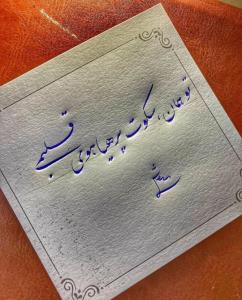 تو همان، سکوت پر هیاهوی قلبمی